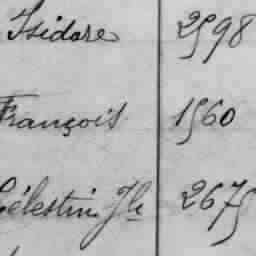 Isidore 2598
François 1560
Célestin Jh 2675